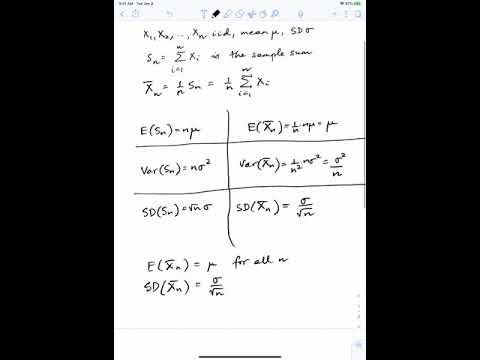 9:41 AM Tue Jan 2
X₁, X₂, ..., Xₙ iid, mean μ, SD σ
Sₙ = ∑ᵢ₌₁ⁿ Xᵢ is the sample sum
X̄ₙ = 1/n Sₙ = 1/n ∑ᵢ₌₁ⁿ Xᵢ
E(Sₙ) = nμ E(X̄ₙ) = 1/n · nμ = μ
Var(Sₙ) = nσ² Var(X̄ₙ) = 1/n² · nσ² = σ²/n
SD(Sₙ) = √n σ SD(X̄ₙ) = σ/√n
E(X̄ₙ) = μ for all n
SD(X̄ₙ) = σ/√n